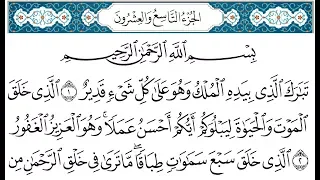 الجُزْءُ التَّاسِعُ وَالعِشْرُونَ
بِسْمِ ٱللَّهِ ٱلرَّحْمَٰنِ ٱلرَّحِيمِ
تَبَٰرَكَ ٱلَّذِى بِيَدِهِ ٱلْمُلْكُ وَهُوَ عَلَىٰ كُلِّ شَىْءٍ قَدِيرٌ ١ ٱلَّذِى خَلَقَ
ٱلْمَوْتَ وَٱلْحَيَوٰةَ لِيَبْلُوَكُمْ أَيُّكُمْ أَحْسَنُ عَمَلًا ۚ وَهُوَ ٱلْعَزِيزُ ٱلْغَفُورُ
٢ ٱلَّذِى خَلَقَ سَبْعَ سَمَٰوَٰتٍ طِبَاقًا ۖ مَّا تَرَىٰ فِى خَلْقِ ٱلرَّحْمَٰنِ مِن